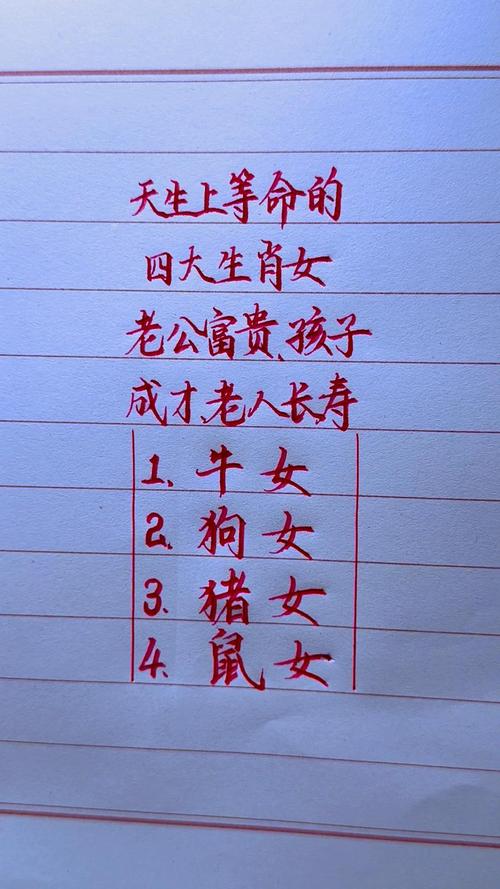 天生上等命的
四大生肖女
老公富贵、孩子
成才、老人长寿
1. 牛女
2. 狗女
3. 猪女
4. 鼠女